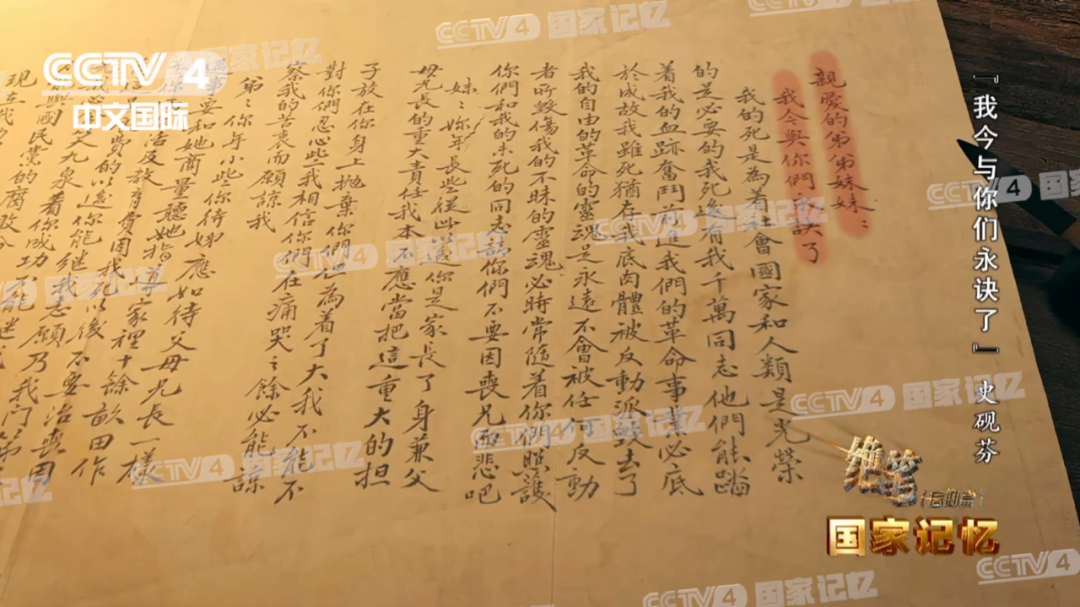 CCTV 4
中文国际
『我今与你们永诀了』 史砚芬
绝笔
国家记忆
親愛的弟弟妹妹:
我今與你們永訣了
我的死是為着社會國家和人類是光榮
的是必要的我死後有我千萬同志他們能踏
着我的血跡奮鬥前進我們的革命事業必底
於成故我雖死猶存我底肉體被反動派毀去了
我的自由的革命的靈魂是永遠不會被任何反動
者所毀傷我的不昧的靈魂必時常隨着你們照護
你們和我的未死的同志請你們不要因喪兄而悲吧
妹〻妳年長些從此以後你是家長了身兼父
母兄長的重大責任我本不應當把這重大的担
子放在你身上拋棄你們但為着了大我不能不
對你們忍心些我相信你們在痛哭之餘必能諒
察我的苦衷而願諒我
弟〻你年小些你待姊應如待父母兄長一樣
事要和她商量聽她指導家裡十餘畝田作
活及教育費用我死以後不要治喪因
費的以後你能繼我志願乃我門第
九泉看你成功不能繼
國民黨的腐敗分
CCTV 4 国家记忆
CCTV 4 国家记忆
CCTV 4 国家记忆
CCTV 4 国家记忆
CCTV 4 国家记忆
CCTV 4 国家记忆
CCTV 4 国家记忆
CCTV 4 国家记忆